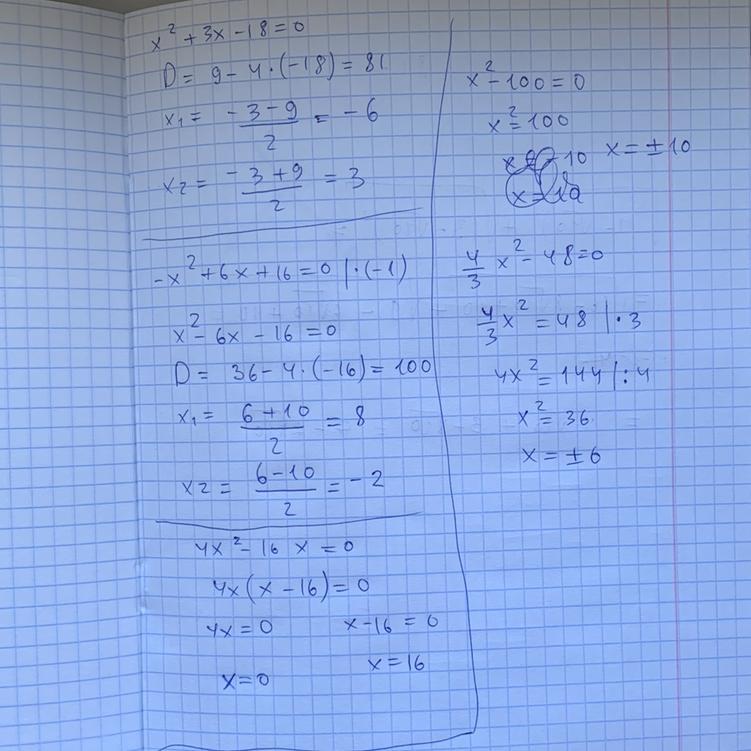 x² + 3x - 18 = 0
D = 9 - 4 · (-18) = 81
x₁ = (-3 - 9)/2 = -6
x₂ = (-3 + 9)/2 = 3
-x² + 6x + 16 = 0 | · (-1)
x² - 6x - 16 = 0
D = 36 - 4 · (-16) = 100
x₁ = (6 + 10)/2 = 8
x₂ = (6 - 10)/2 = -2
4x² - 16x = 0
4x(x - 16) = 0
4x = 0 x - 16 = 0
x = 16
x = 0
x² - 100 = 0
x² = 100
x = ±10
4/3 x² - 48 = 0
4/3 x² = 48 | · 3
4x² = 144 | : 4
x² = 36
x = ±6